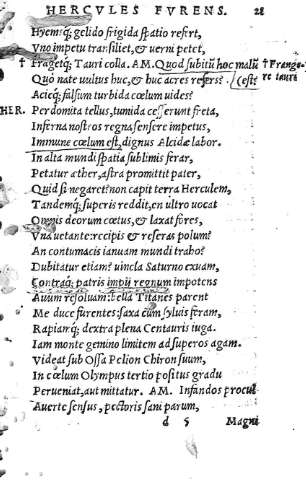 HERCVLES FVRENS. 28
Hyemsq; gelido frigida spatio refert,
Vno impetu transiliet, & uerni petet,
† Frangetq; Tauri colla. AM. Quod subitū hoc malū † Frange-
Quò nate uultus huc, & huc acres refers? (est? re tauri
Acieq; falsum turbida cœlum uides?
HER. Perdomita tellus, tumida cesserunt freta,
Inferna nostros regna sensere impetus,
Immune cœlum est, dignus Alcidæ labor.
In alta mundi spatia sublimis ferar,
Petatur æther, astra promittit pater,
Quid si negaret? non capit terra Herculem,
Tandemq; superis reddit, en ultro uocat
Omnis deorum cœtus, & laxat fores,
Vna uetante: recipis & reseras polum?
An contumacis ianuam mundi traho?
Dubitatur etiam? uincla Saturno exuam,
Contraq; patris impij regnum impotens
Auum resoluam: bella Titanes parent
Me duce furentes: saxa cum syluis feram,
Rapiamq; dextra plena Centauris iuga.
Iam monte gemino limitem ad superos agam.
Videat sub Ossa Pelion Chiron suum,
In cœlum Olympus tertio positus gradu
Perueniat, aut mittatur. AM. Infandos procul
Auerte sensus, pectoris sani parum,
d 5 Magni